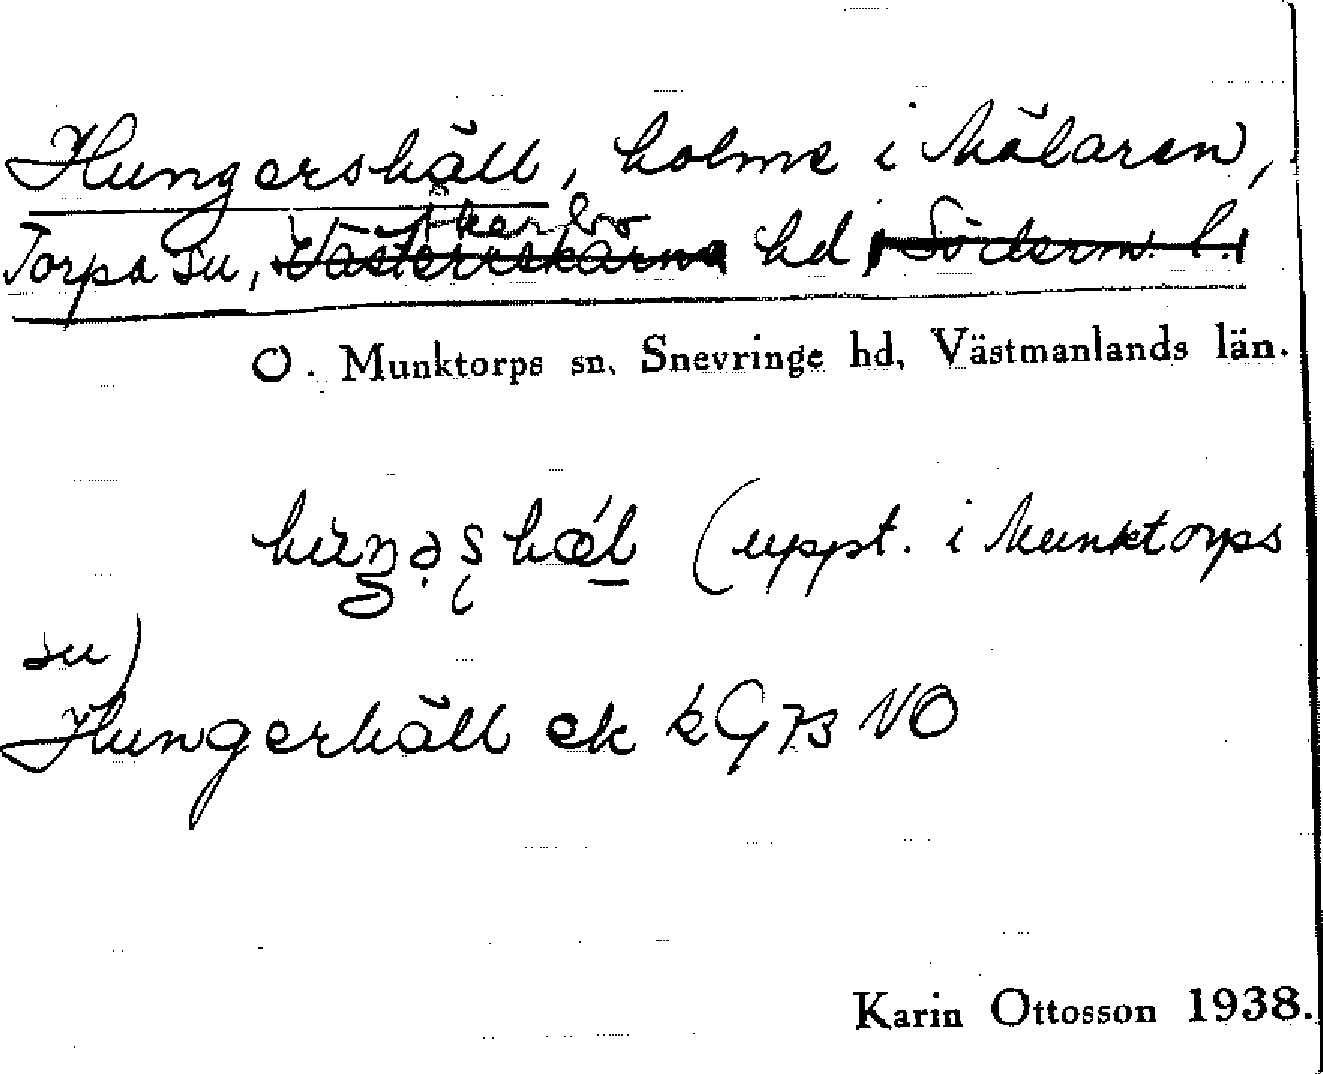 Hungershäll, holme i Mälaren,
Åkerbo
Torpa sn, Västerrekarne hd, Söderm. l.
O. Munktorps sn, Snevringe hd, Västmanlands län.
(uppt. i Munktorps
sn)
Hungerhäll ek kG73 NO
Karin Ottosson 1938.